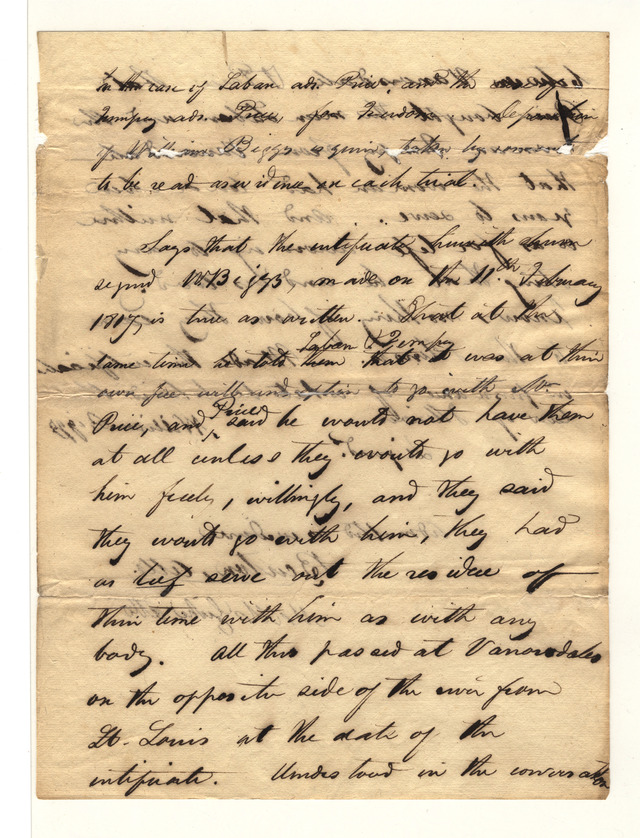 In the case of Laban ads. Price, and the
Tempey ads. Price for Freedom Deposition
of William Biggs is given taken by consent
to be read as evidence on each trial.
Says that the certificate herewith shewn
signed W Biggs made on the 11th February
1817, is true as written. That at the
Laban & Tempy
same time he told them that it was at their
own free will to go with Mr
Price, and Price said he would not have them
at all unless they would go with
him freely, willingly, and they said
they would go with him, they had
as lief serve out the residue of
their time with him as with any
body. All this passed at Vanorsdales
on the opposite side of the river from
St. Louis at the date of the
certificate. Understood in the conversation